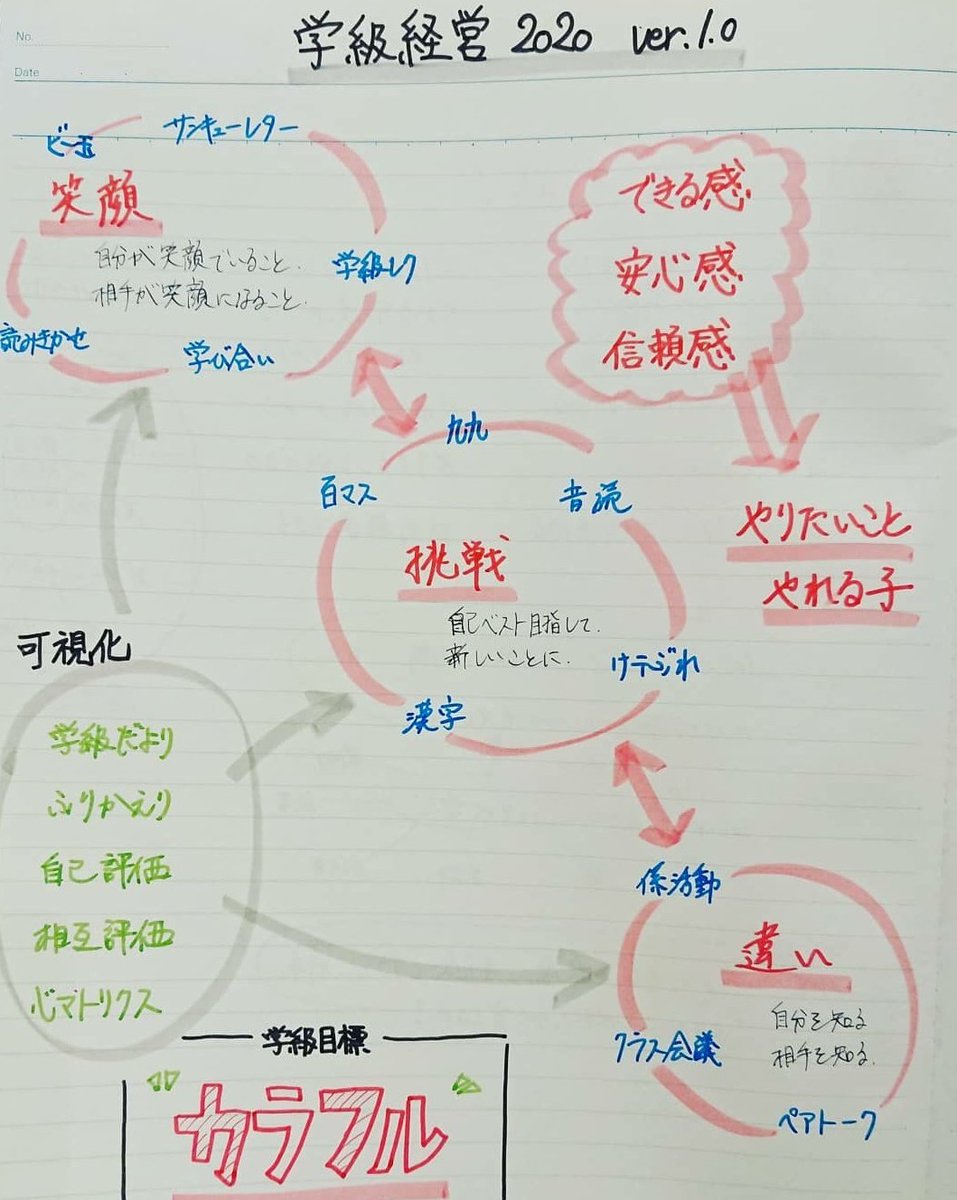 No.
Date
学級経営 2020 ver.1.0
ビー玉
サンキューレター
笑顔
自分が笑顔でいること.
相手が笑顔になること.
学級レク
読みきかせ
学び合い
できる感
安心感
信頼感
やりたいこと
やれる子
九九
百マス
音読
挑戦
自己ベスト目指して.
新しいことに.
けテぶれ
漢字
可視化
学級だより
ふりかえり
自己評価
相互評価
心マトリクス
係活動
違い
自分を知る
相手を知る.
クラス会議
ペアトーク
学級目標
カラフル